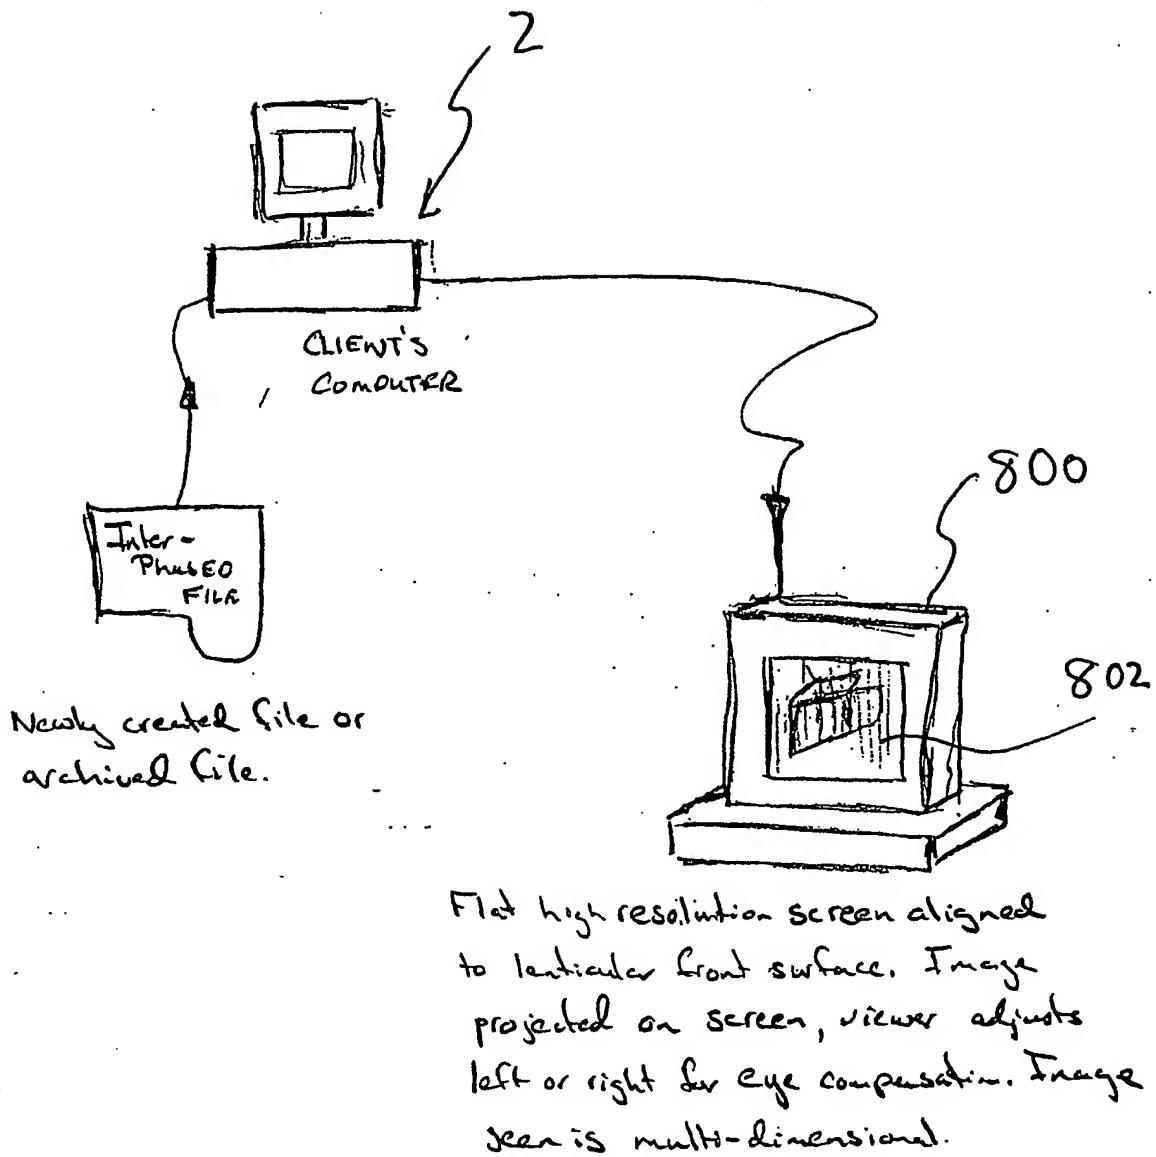 2
CLIENT'S
COMPUTER
800
Inter-
PHASED
FILE
802
Newly created file or
archived file.
Flat high resolution screen aligned
to lenticular front surface. Image
projected on screen, viewer adjusts
left or right for eye compensation. Image
seen is multi-dimensional.